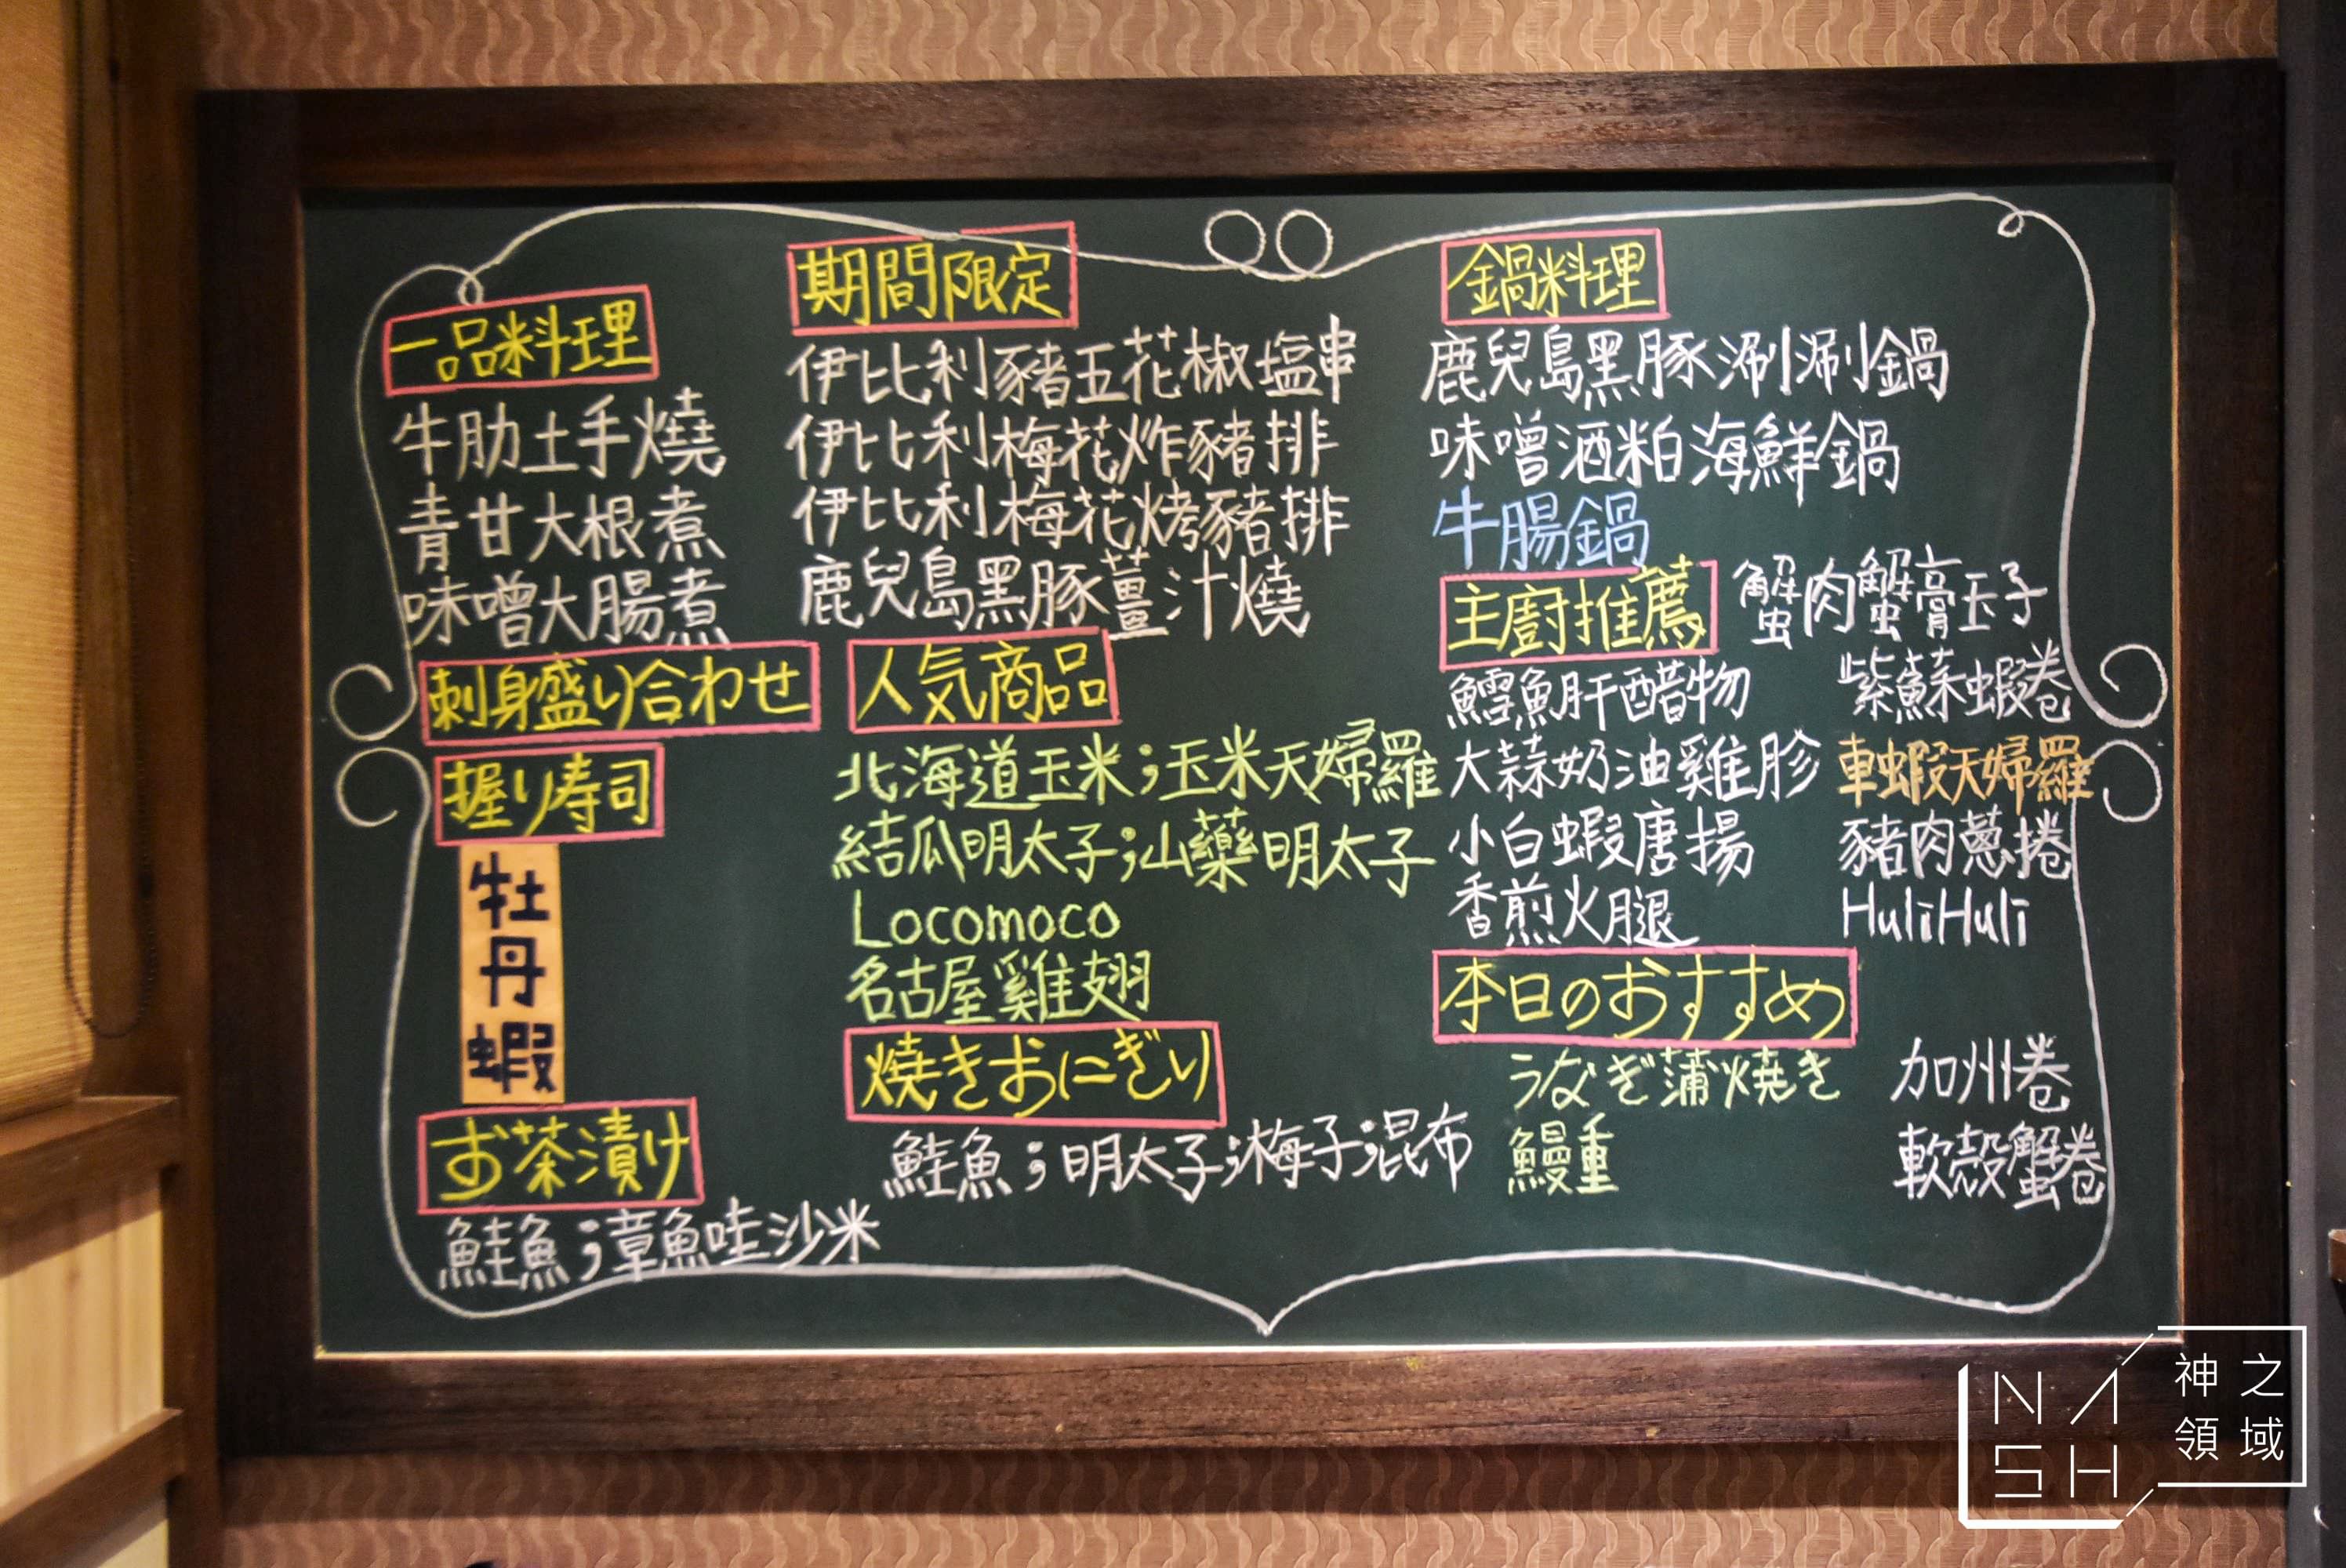 一品料理
牛肋土手燒
青甘大根煮
味噌大腸煮
刺身盛り合わせ
握り寿司
牡丹蝦
お茶漬け
鮭魚；章魚哇沙米
期間限定
伊比利豬五花椒塩串
伊比利梅花炸豬排
伊比利梅花烤豬排
鹿兒島黑豚薑汁燒
人気商品
北海道玉米；玉米天婦羅
結瓜明太子；山藥明太子
Locomoco
名古屋雞翅
焼きおにぎり
鮭魚；明太子；梅子；混布
鍋料理
鹿兒島黑豚涮涮鍋
味噌酒粕海鮮鍋
牛腸鍋
主廚推薦
蟹肉蟹膏玉子
鱈魚肝醋物
紫蘇蝦卷
大蒜奶油雞胗
車蝦天婦羅
小白蝦唐揚
豬肉蔥捲
香煎火腿
HuliHuli
本日のおすすめ
うなぎ蒲焼き
加州卷
鰻重
軟殼蟹卷
NASH
神之領域